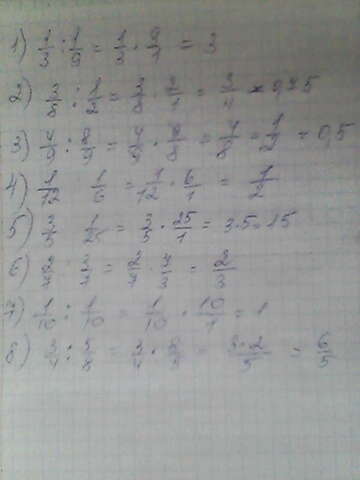 1) 1/3 : 1/9 = 1/3 · 9/1 = 3
2) 3/8 : 1/2 = 3/8 · 2/1 = 3/4 = 0,75
3) 4/9 : 8/9 = 4/9 · 9/8 = 4/8 = 1/2 = 0,5
4) 1/12 1/6 = 1/12 · 6/1 = 1/2
5) 3/5 1/25 = 3/5 · 25/1 = 3·5=15
6) 2/7 3/7 = 2/7 · 7/3 = 2/3
7) 1/10 : 1/10 = 1/10 · 10/1 = 1
8) 3/4 : 5/8 = 3/4 · 8/5 = 3·2/5 = 6/5